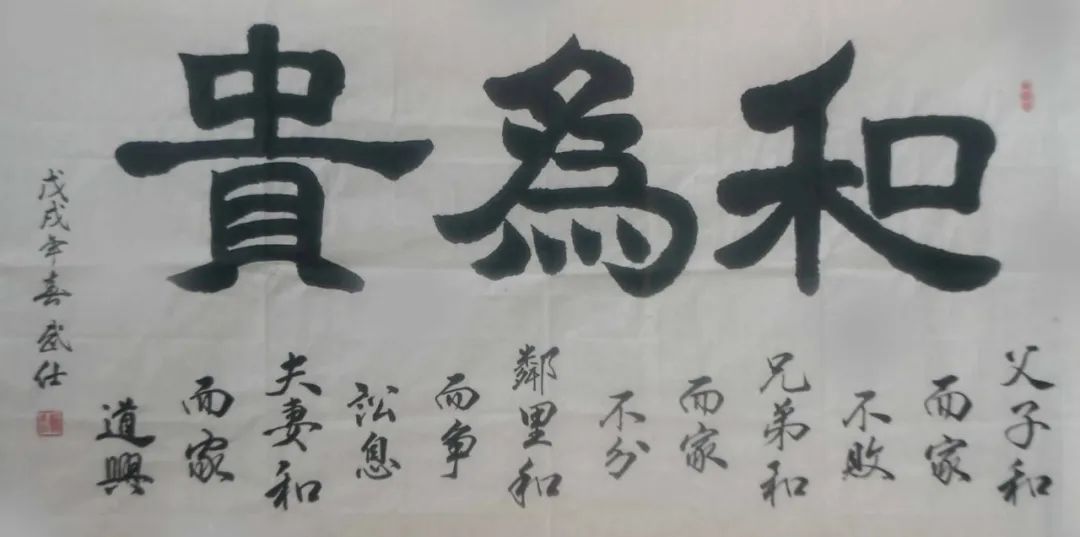 和為貴
父子和
而家
不敗
兄弟和
而家
不分
鄰里和
而爭
訟息
夫妻和
而家
道興
戊戌年春武仕